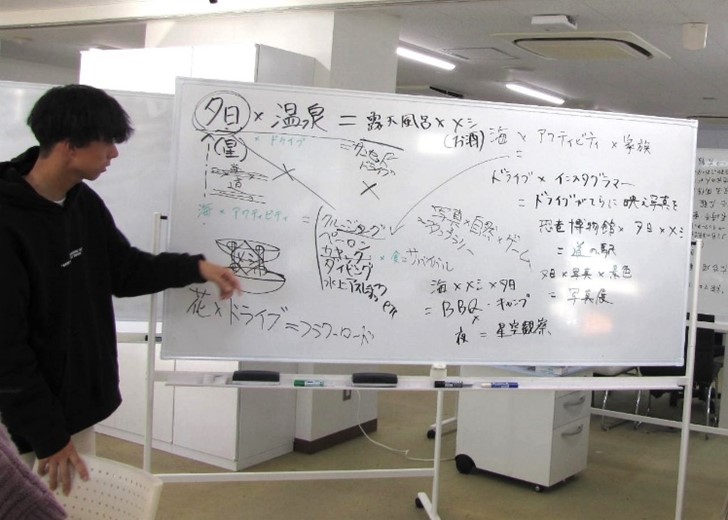 夕日 × 温泉 = 露天風呂 × メシ
(お酒)
(星)
× ドライブ
= サンセット
ドライブ
道
海 × アクティビティ =
クルージング
ペーロン
カヤック
ダイビング
水上アスレチック
× 食 = サバイバル
花 × ドライブ = フラワーロード
海 × アクティビティ × 家族
=
ドライブ × インスタグラマー
= ドライブがてらに映え写真を
写真 × 自然 × ゲーム
恐竜博物館 × 夕日 × メシ
= 道の駅
海 × メシ × 夕日
= BBQ・キャンプ
×
夜 = 星空観察
夕日 × 写真 × 景色
= 写真展